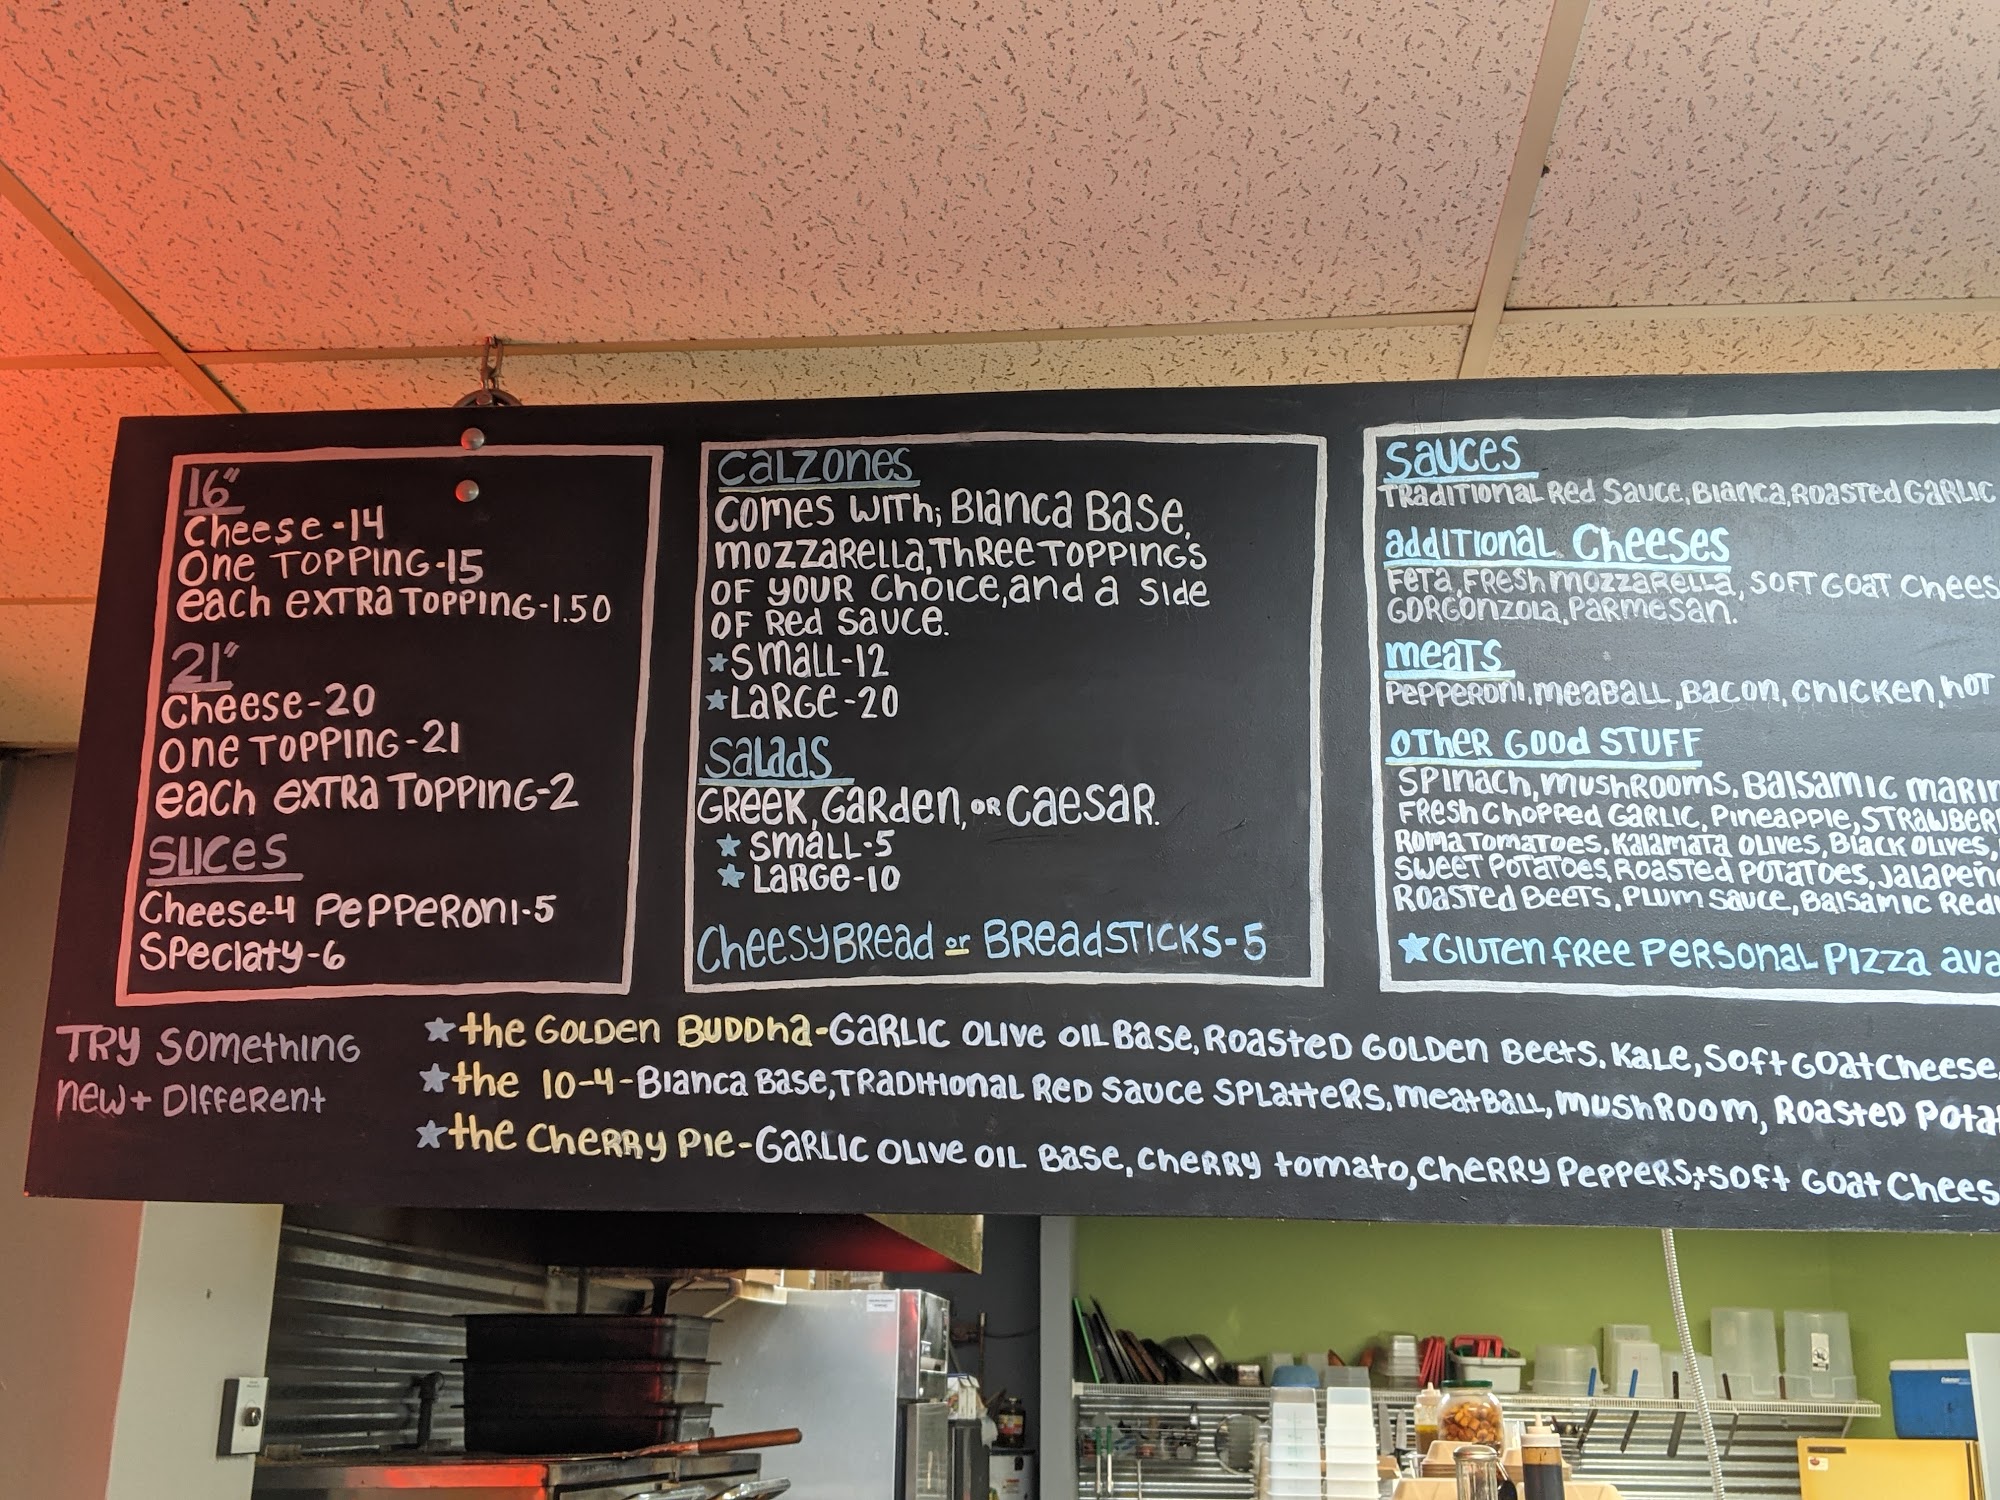 16"
Cheese-14
One Topping-15
each extra Topping-1.50
21"
Cheese-20
One Topping-21
each extra Topping-2
Slices
Cheese-4 Pepperoni-5
Speciaty-6
Calzones
Comes with; Bianca Base,
mozzarella, Three Toppings
of your choice, and a side
of Red sauce.
★Small-12
★Large-20
Salads
Greek, Garden, or Caesar.
★ Small-5
★ Large-10
CheesyBread or Breadsticks-5
Sauces
Traditional Red Sauce, Bianca, Roasted Garlic
additional Cheeses
Feta, Fresh mozzarella, Soft Goat Chees
Gorgonzola, Parmesan.
meats
Pepperoni, meaBall, Bacon, chicken, hot
Other Good Stuff
Spinach, mushrooms, Balsamic marin
Fresh Chopped Garlic, Pineapple, Strawber
Roma Tomatoes, Kalamata Olives, Black Olives,
Sweet Potatoes, Roasted Potatoes, Jalapeñ
Roasted Beets, Plum Sauce, Balsamic Red
★Gluten free Personal Pizza ava
Try something
new + Different
★the Golden Buddha-Garlic Olive Oil Base, Roasted Golden Beets, Kale, Soft Goat Cheese,
★the 10-4-Bianca Base, Traditional Red Sauce Splatters, meatball, mushroom, Roasted Pota
★the Cherry Pie-Garlic Olive Oil Base, Cherry tomato, Cherry Peppers, + Soft Goat Chees